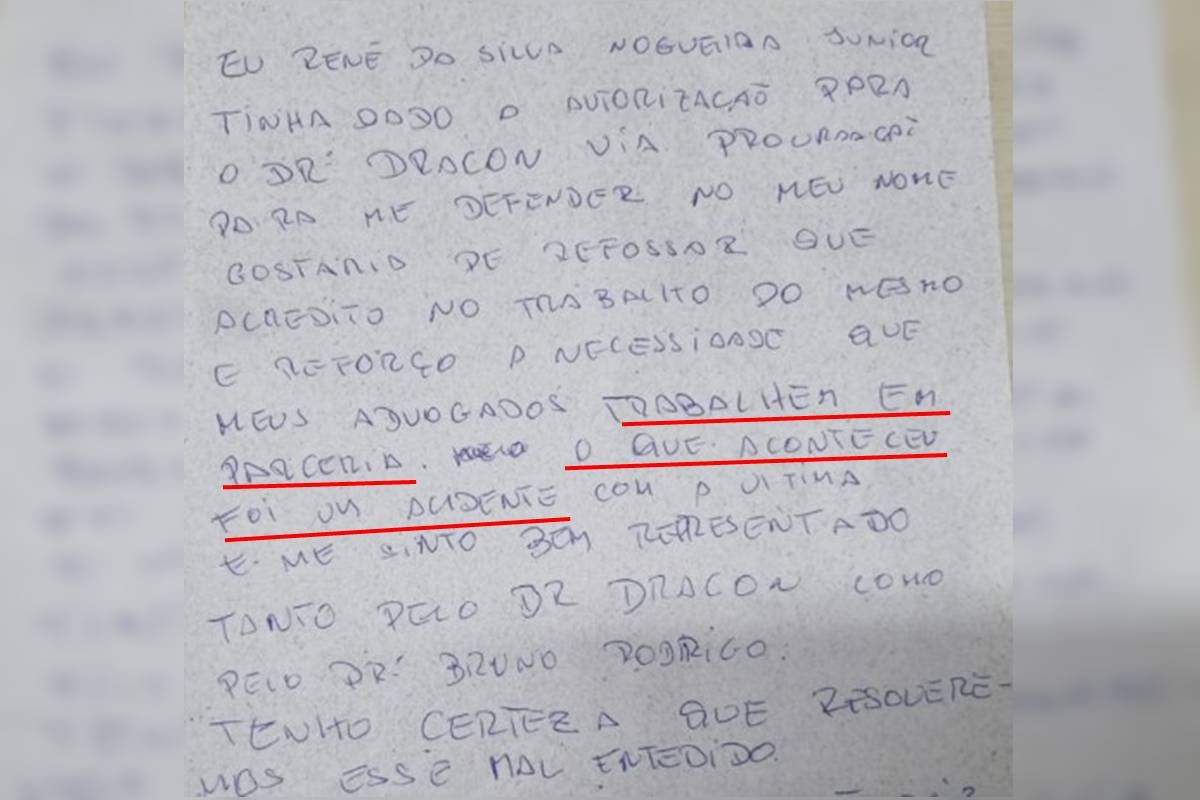 EU RENÊ DA SILVA NOGUEIRA JUNIOR
TINHA DADO A AUTORIZAÇAÕ PARA
O DR: DRACON VIA PROCURAÇAÕ
PARA ME DEFENDER NO MEU NOME
GOSTARIA DE REFOSSAR QUE
ACREDITO NO TRABALHO DO MESMO
E REFORÇO A NECESSIDADE QUE
MEUS ADVOGADOS TRABALHEM EM
PARCERIA. O QUE ACONTECEU
FOI UM ACIDENTE COM A VITIMA
E ME SINTO BEM REPRESENTADO
TANTO PELO DR DRACON COMO
PELO DR: BRUNO RODRIGO.
TENHO CERTEZA QUE RESOLVERE-
MOS ESSE MAL ENTEDIDO.